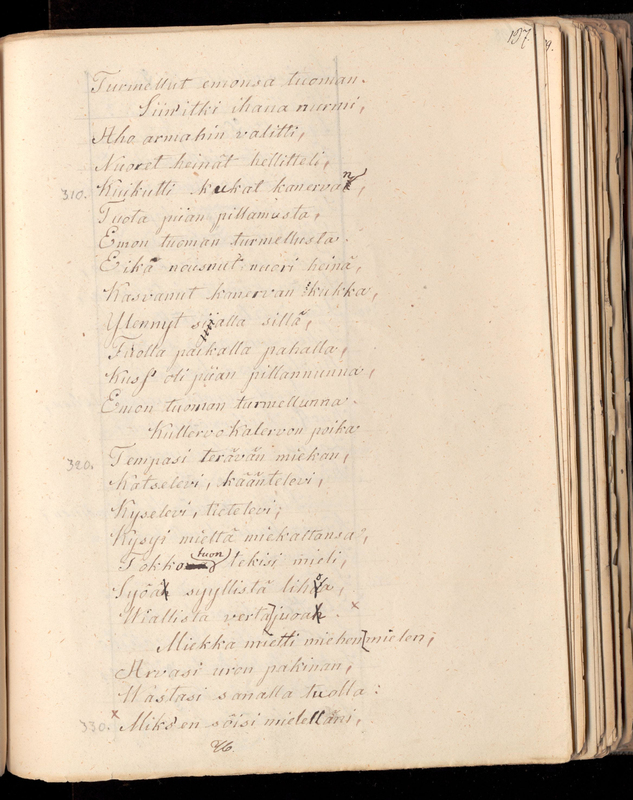 197.
9.
Turmellut emonsa tuoman.
Siin' itki ihana nurmi,
Aho armahin valitti,
Nuoret heinät hellitteli,
310. Kuikutti kukat kanervan,
Tuota piian pillamusta,
Emon tuoman turmellusta.
Eikä nousnut nuori heinä,
Kasvanut kanervan kukka,
Ylennyt sialla sillä,
Tuolla paikalla pahalla,
Kuss' oli piian pillannunna,
Emon tuoman turmellunna.
Kullervo Kalervon poika
320. Tempasi terävän miekan,
Katselevi, kääntelevi,
Kyselevi, tietelevi;
Kysyi mieltä miekaltansa,
Tokko tuon tekisi mieli,
Syöä syyllistä lihoa,
Wiallista verta juoa. x
Miekka mietti miehen mielen;
Arvasi uron pakinan,
Wastasi sanalla tuolla:
330. x Miks'en söisi mielelläni,